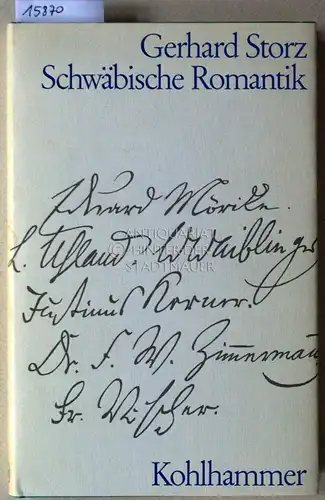 15870
Gerhard Storz
Schwäbische Romantik
Eduard Mörike.
L. Uhland. W. Waiblinger
ANTIQUARIAT
HINTER DER
STADTMAUER
Justinus Kerner.
Dr. F. W. Zimmermann
Fr. Vischer.
Kohlhammer